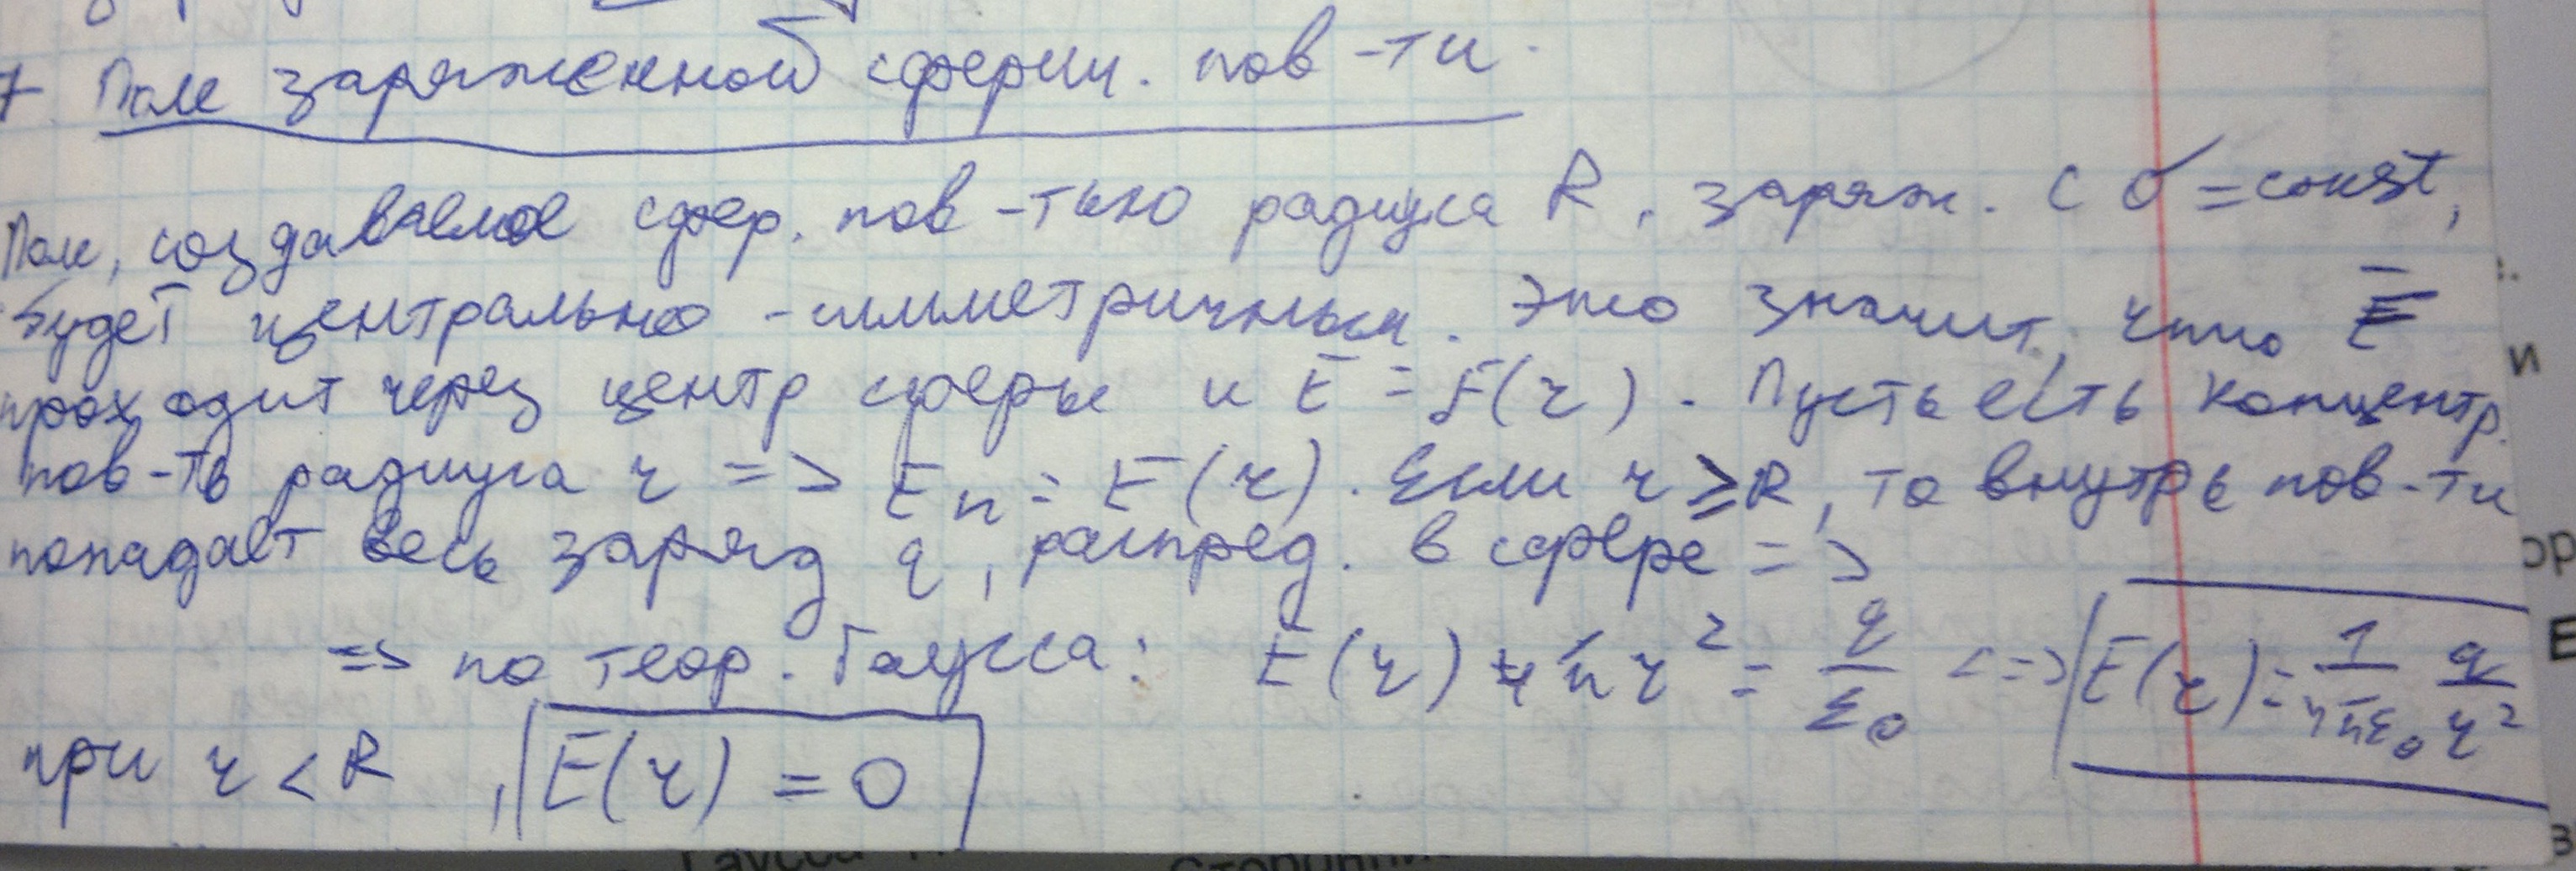 7 Поле заряженной сферич. пов-ти.
Поле, создаваемое сфер. пов-тью радиуса R, заряж. с σ = const,
будет центрально-симметричным. Это значит, что E̅
проходит через центр сферы и E = f(r). Пусть есть концентр.
пов-ть радиуса r => Eₙ = E(r). Если r ≥ R, то внутрь пов-ти
попадает весь заряд q, распред. в сфере =>
=> по теор. Гаусса: E(r) 4πr² = q/ε₀ <=> E(r) = 1/4πε₀ q/r²
при r < R, E(r) = 0